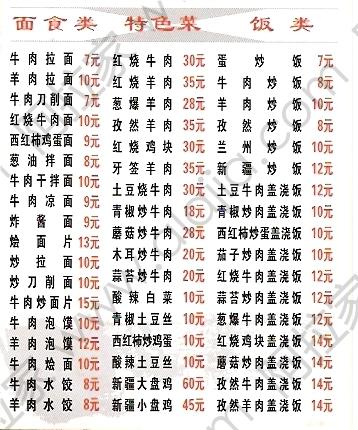 面食类 特色菜 饭类
牛肉拉面 7元 红烧牛肉 30元 蛋炒饭 7元
羊肉拉面 10元 红烧羊肉 35元 牛肉炒饭 8元
牛肉刀削面 7元 葱爆羊肉 28元 羊肉炒饭 10元
红烧牛肉面 10元 孜然羊肉 35元 孜然炒饭 8元
西红柿鸡蛋面 9元 红烧鸡块 30元 兰州炒饭 10元
葱油拌面 8元 牙签羊肉 35元 新疆炒饭 12元
牛肉干拌面 10元 土豆烧牛肉 30元 土豆牛肉盖浇饭 10元
牛肉凉面 9元 青椒炒牛肉 18元 青椒炒肉盖浇饭 10元
炸酱面 9元 蘑菇炒牛肉 28元 西红柿炒蛋盖浇饭 10元
烩面片 13元 木耳炒牛肉 20元 茄子炒肉盖浇饭 10元
炒拉面 10元 蒜苔炒牛肉 20元 红烧牛肉盖浇饭 12元
炒刀削面 10元 酸辣白菜 10元 蒜苔炒肉盖浇饭 12元
牛肉炒面片 15元 青椒土豆丝 10元 葱爆牛肉盖浇饭 12元
牛肉泡馍 10元 西红柿炒鸡蛋 10元 红烧鸡块盖浇饭 12元
羊肉泡馍 12元 酸辣土豆丝 10元 蘑菇炒肉盖浇饭 14元
牛肉烩面 10元 新疆大盘鸡 60元 孜然牛肉盖浇饭 14元
牛肉水饺 8元 新疆小盘鸡 45元 孜然羊肉盖浇饭 14元
羊肉水饺 8元